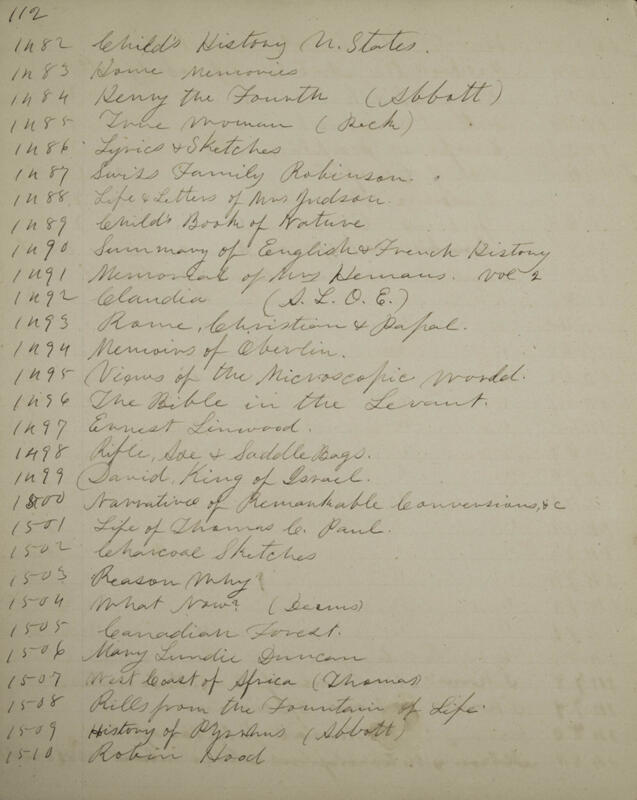 112
1482 Child's History U. States.
1483 Home Memories
1484 Henry the Fourth (Abbott)
1485 True Woman (Peck)
1486 Lyrics & Sketches
1487 Swiss Family Robinson.
1488 Life & Letters of Mrs Judson.
1489 Child's Book of Nature
1490 Summary of English & French History
1491 Memorial of Mrs Hemans. vol 2
1492 Claudia (A. L. O. E.)
1493 Rome, Christian & Papal.
1494 Memoirs of Oberlin.
1495 Views of the Microscopic World.
1496 The Bible in the Levant.
1497 Ernest Linwood.
1498 Rifle, Axe & Saddle Bags.
1499 David, King of Israel.
1500 Narrative of Remarkable Conversions, &c
1501 Life of Thomas C. Paul.
1502 Charcoal Sketches
1503 Reason Why?
1504 What Now? (Deems)
1505 Canadian Forest.
1506 Mary Lundie Duncan
1507 West Coast of Africa (Thomas)
1508 Rills from the Fountain of Life.
1509 History of Pyrrhus (Abbott)
1510 Robin Hood